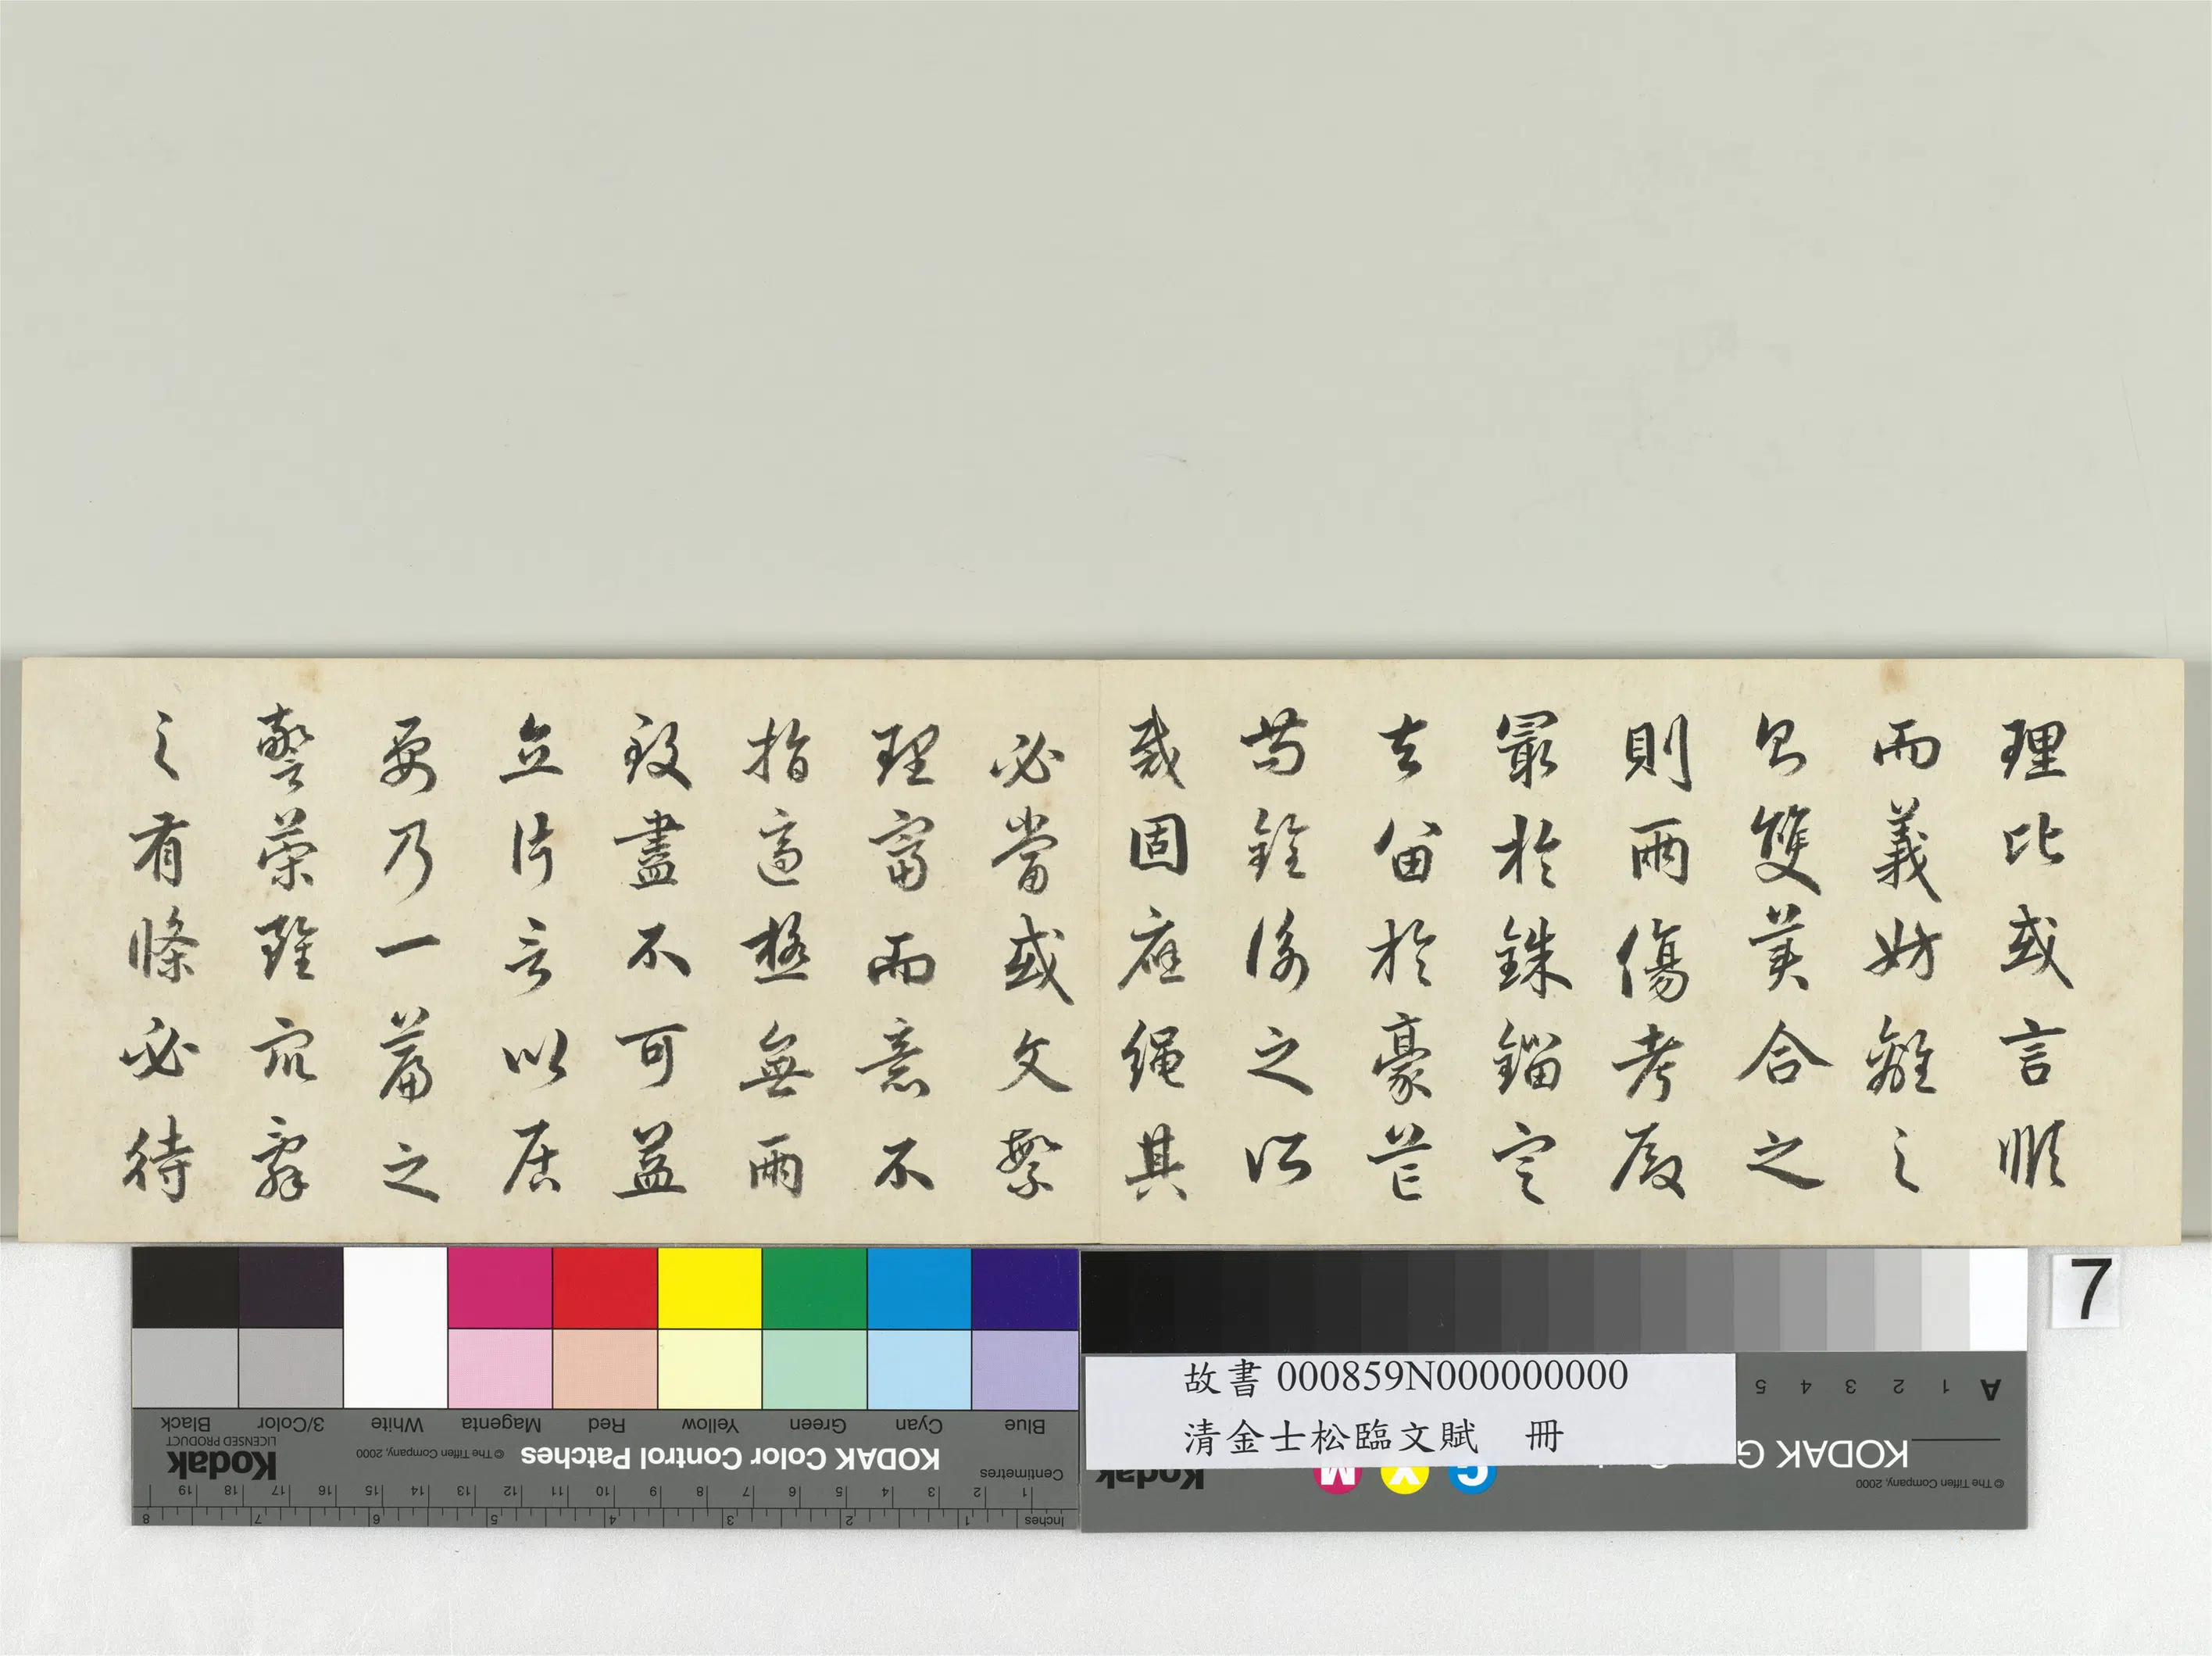 理比或言順
而義妨離之
則雙美合之
則兩傷考殿
最於銖錙定
去留於豪芒
苟銓衡之所
裁固應繩其
必當或文繁
理富而意不
指適極無兩
致盡不可益
立片言以居
要乃一篇之
警策雖眾辭
之有條必待
7
故書 000859N000000000
清金士松臨文賦 冊
KODAK Color Control Patches
© The Tiffen Company, 2000
Kodak
LICENSED PRODUCT
Blue Cyan Green Yellow Red Magenta White 3/Color Black
Centimetres 1 2 3 4 5 6 7 8 9 10 11 12 13 14 15 16 17 18 19
Inches 1 2 3 4 5 6 7 8
A 1 2 3 4 5
KODAK G
© The Tiffen Company, 2000
C Y M
Kodak